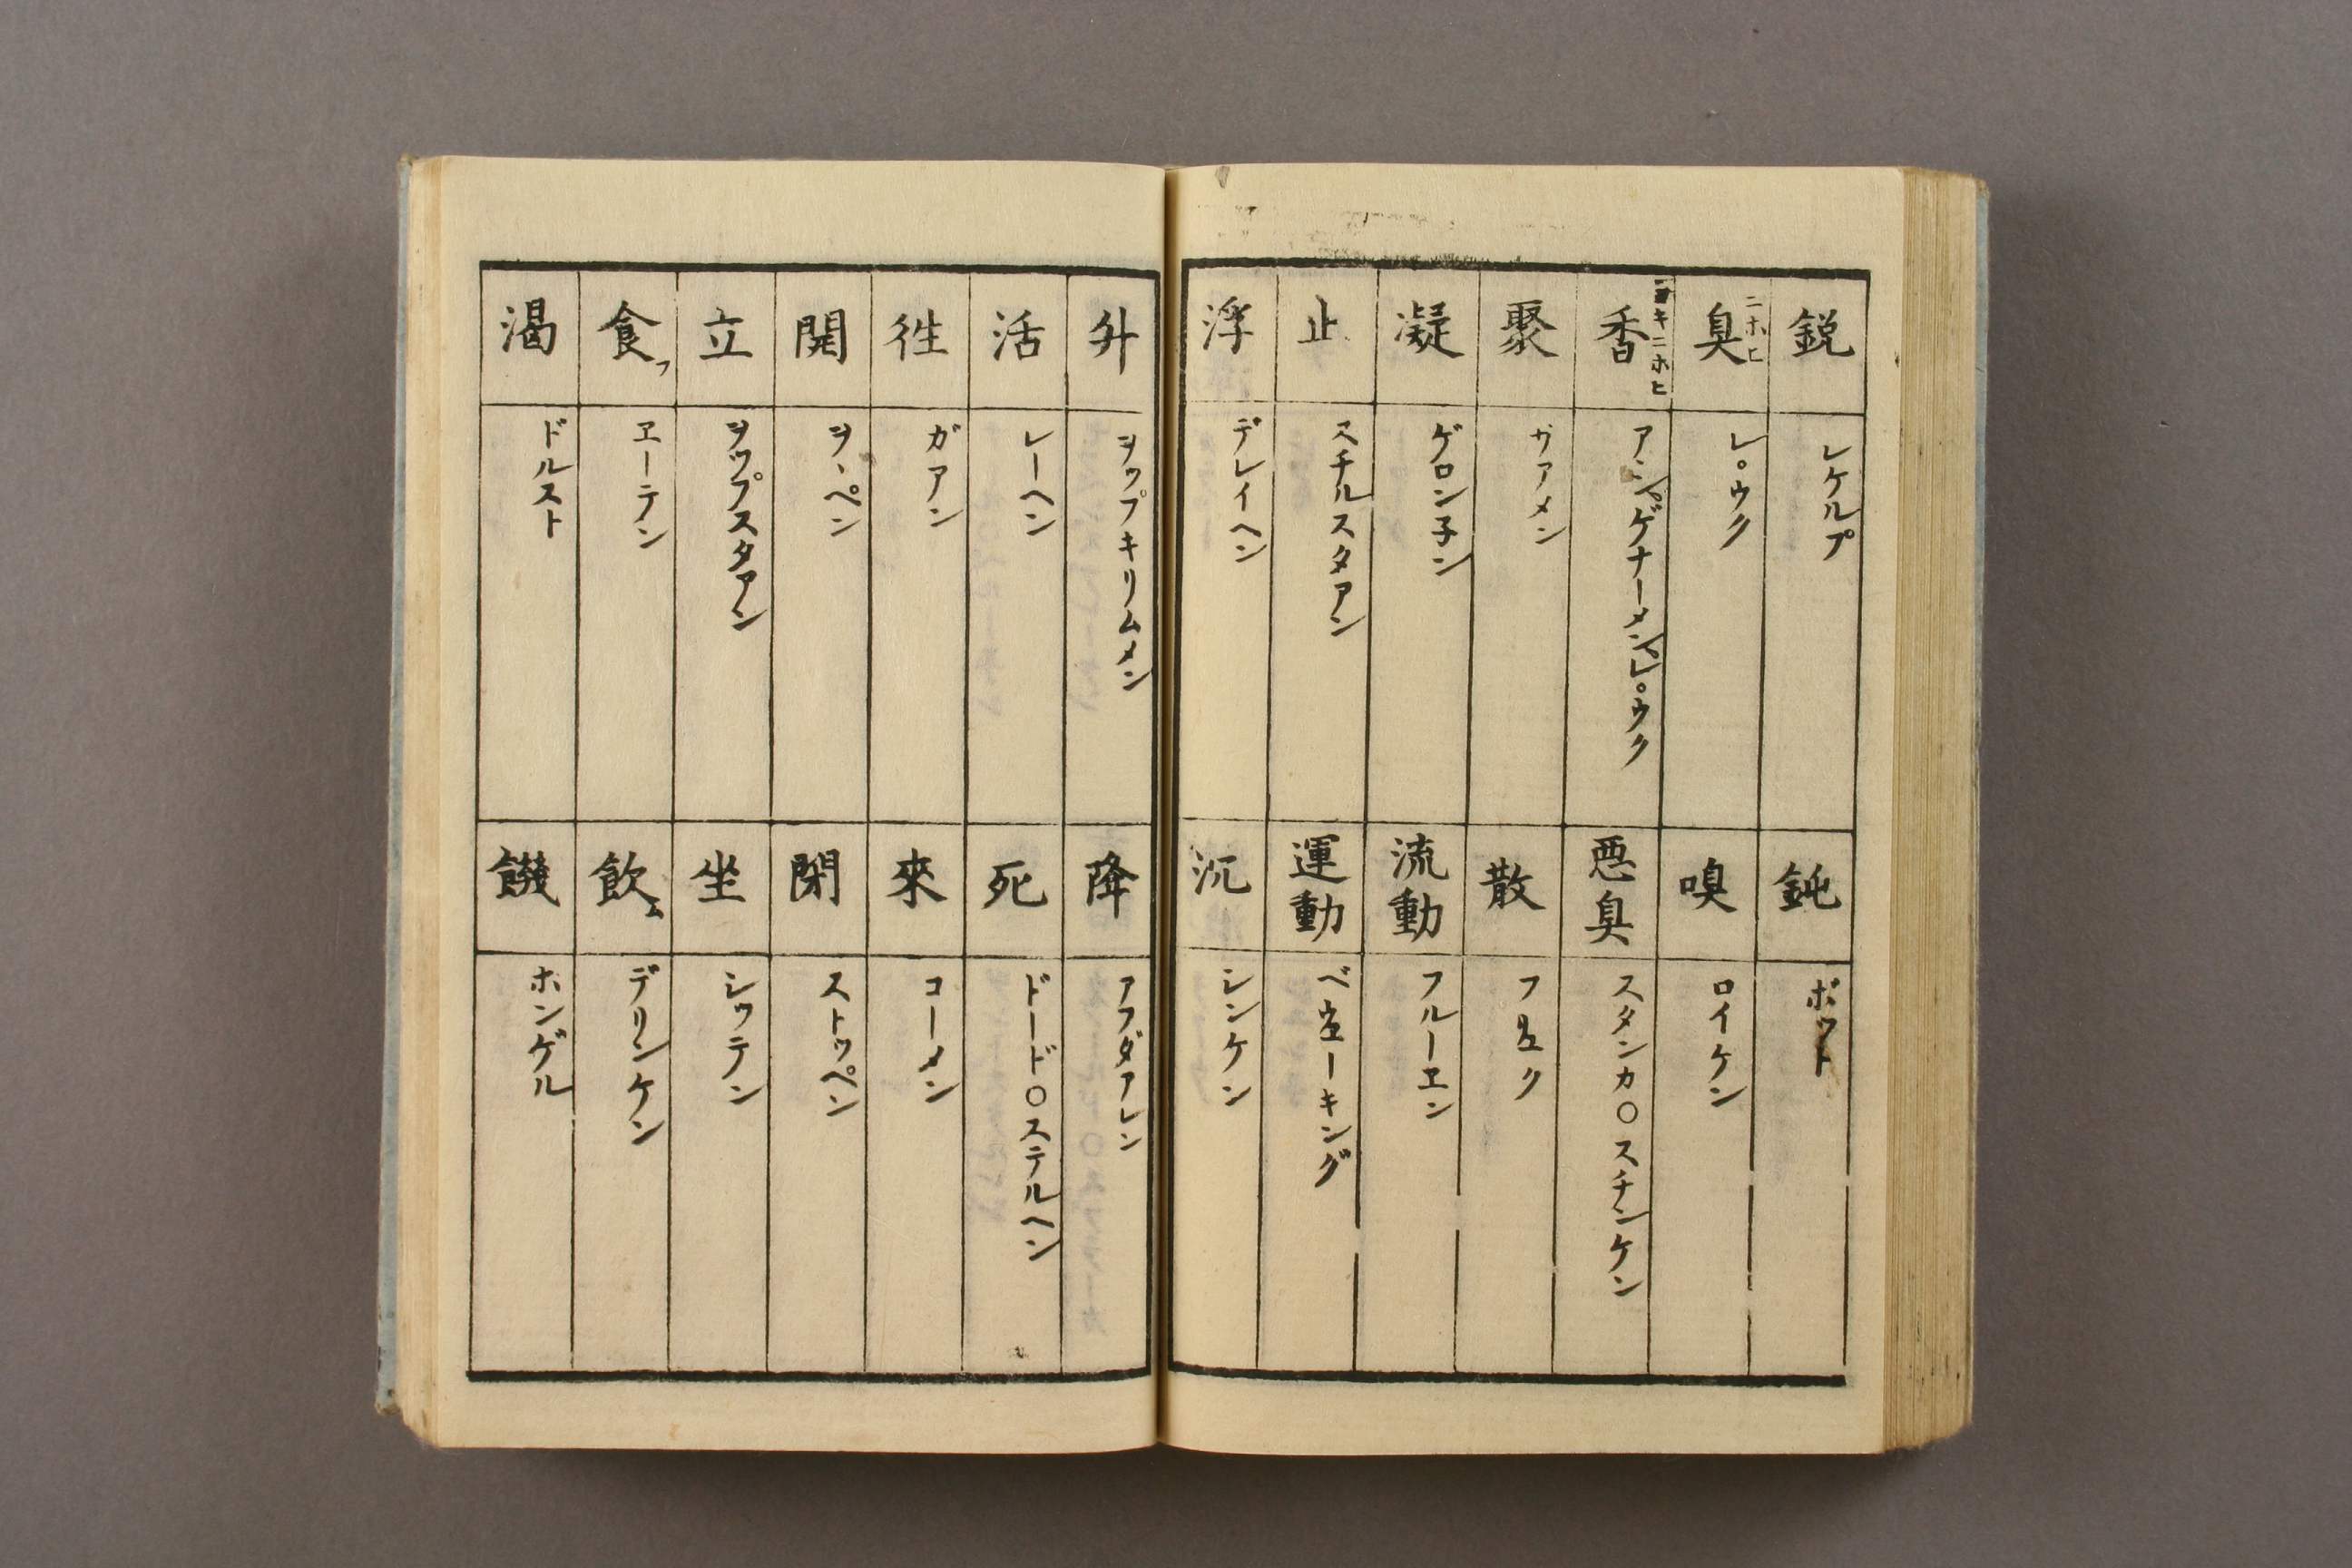 鋭 レケルプ
鈍 ボット
臭 ニホヒ レ゜ウク
嗅 ロイケン
香 ヨキニホヒ アンゲナーメンレ゜ウク
悪臭 スタンカ○スチンケン
聚 サアメン
散
凝 ゲロン子ン
流動 フルーヱン
止 スチルスタアン
運動
浮 デレイヘン
沉 シンケン
升 ヲップキリムメン
降 アフダアレン
活 レーヘン
死 ドード○ステルヘン
徃 ガアン
來 コーメン
開 ヲヽペン
閉 ストッペン
立 ヲップスタアン
坐 シッテン
食フ ヱーテン
飲ム デリンケン
渇 ドルスト
饑 ホンゲル